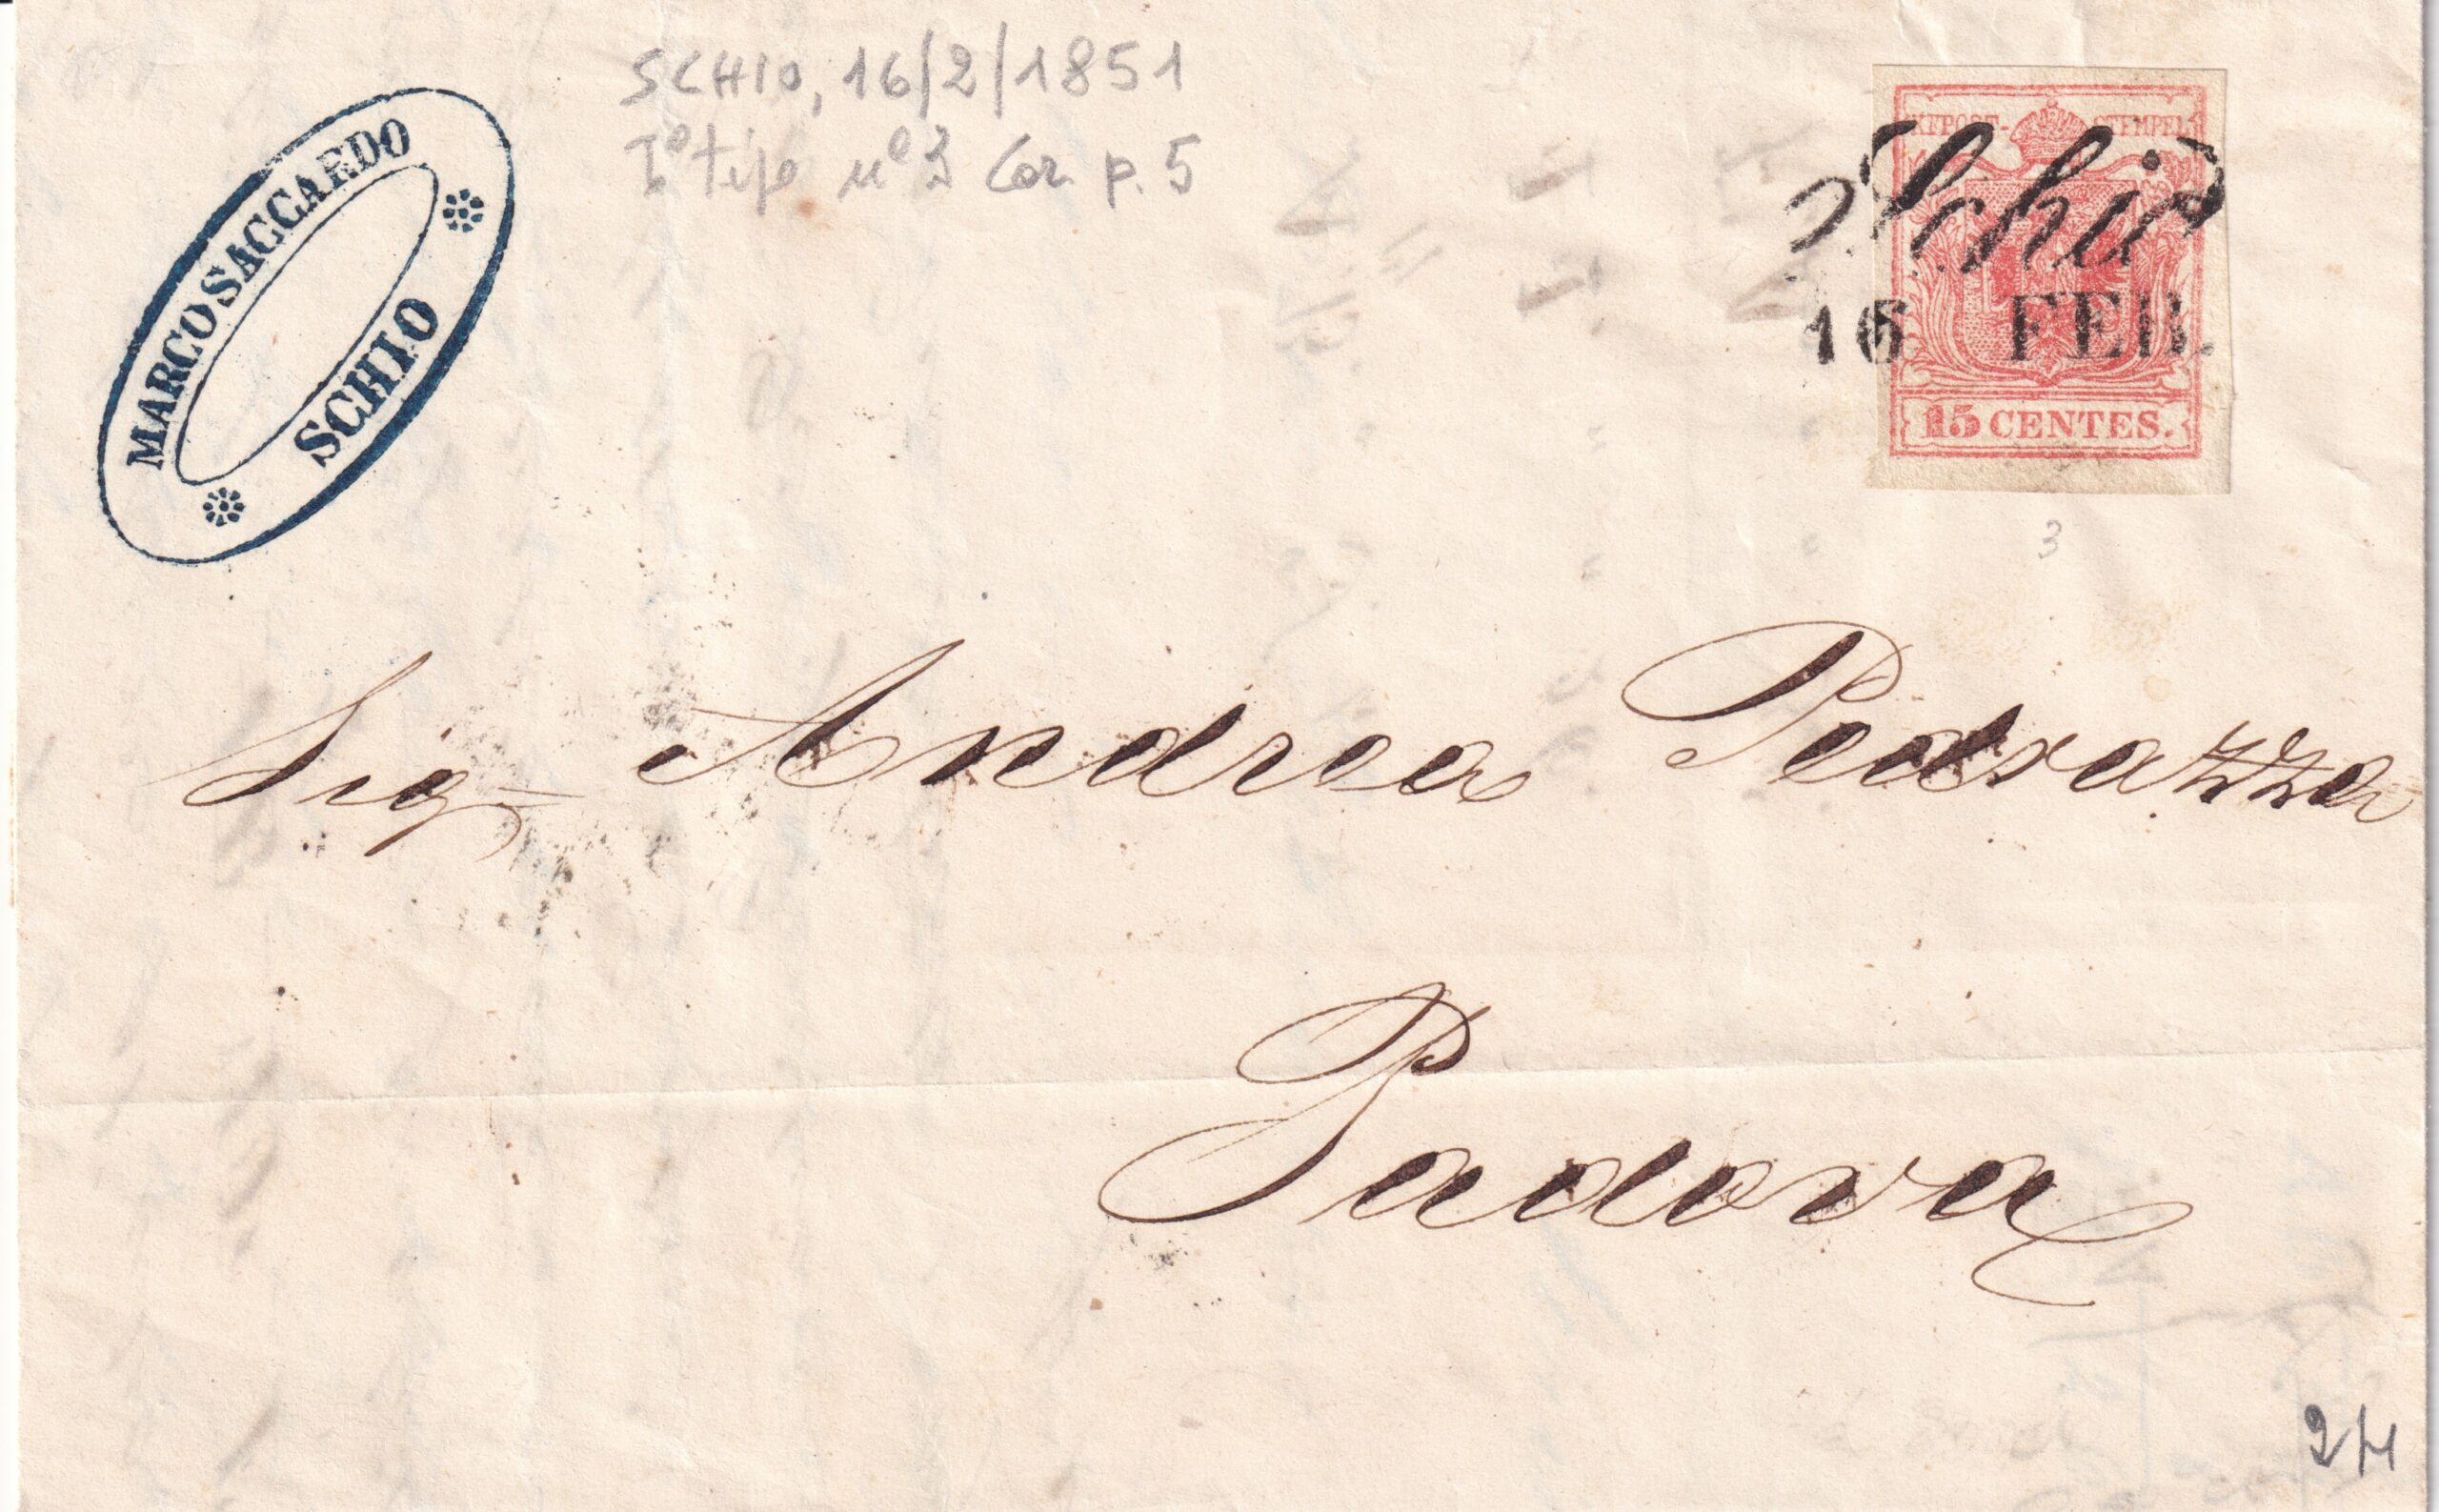 SCHIO, 16/2/1851
Iº tipo nº 3 Cor. p. 5
MARCO SACCARDO
SCHIO
KKPOST-STEMPEL
Schio
16 FEB.
15 CENTES.
3
Sig. Andrea Pedrazza
Padova